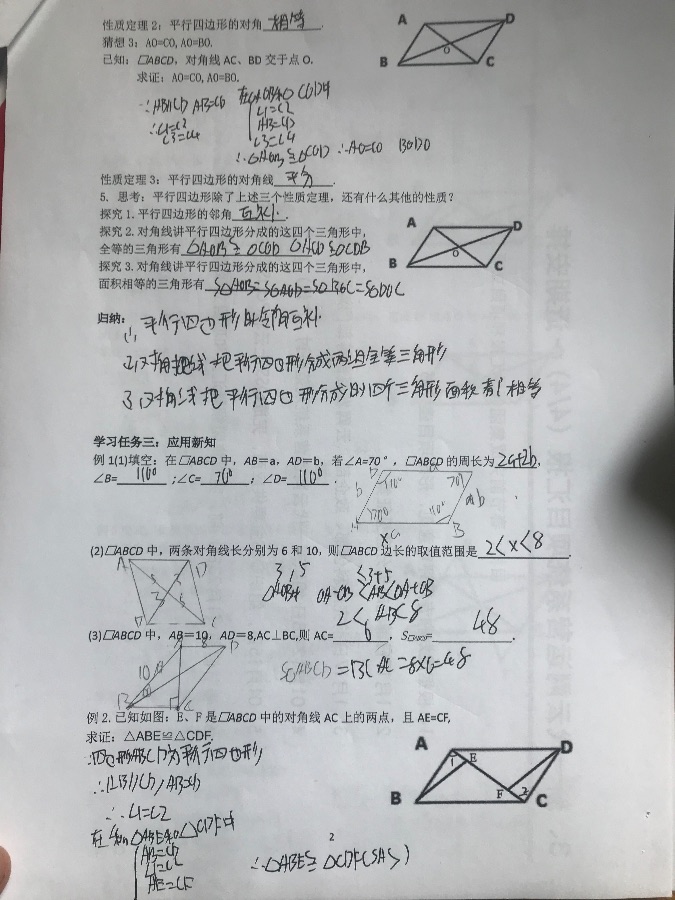 性质定理2：平行四边形的对角 相等 .
猜想3：AO=CO, AO=BO.
已知：□ABCD，对角线AC、BD交于点O.
求证：AO=CO, AO=BO.
A D
O
B C
∵AB∥CD AB=CD 在△AOB和△COD中
∴∠1=∠2 ∠1=∠2
∠3=∠4 AB=CD
∠3=∠4
∴△AOB≌△COD ∴AO=CO BO=DO
性质定理3：平行四边形的对角线 平分 .
5. 思考：平行四边形除了上述三个性质定理，还有什么其他的性质？
探究1.平行四边形的邻角 互补 .
探究2.对角线讲平行四边形分成的这四个三角形中，
全等的三角形有 △AOB≌△COD △AOD≌△COB
A D
O
B C
探究3.对角线讲平行四边形分成的这四个三角形中，
面积相等的三角形有 S△AOB=S△AOD=S△BOC=S△DOC
归纳：
(1) 平行四边形的邻角互补
2、对角线把平行四边形分成两组全等三角形
3、对角线把平行四边形分成的四个三角形面积都相等
学习任务三：应用新知
例1(1)填空：在□ABCD中，AB=a，AD=b，若∠A=70°，□ABCD的周长为 2a+2b ，
∠B= 110° ;∠C= 70° ；∠D= 110° .
110° 70°
b b
70° 110°
a B
(2)□ABCD中，两条对角线长分别为6和10，则□ABCD边长的取值范围是 2<x<8 .
A D
3，5 <3+5
△AOB中 OA-OB<AB<OA+OB
2<AB<8
(3)□ABCD中，AB=10，AD=8,AC⊥BC,则AC= 6 ，S□ABCD= 48 .
A 8 D
10
B C
S□ABCD=BC·AC=8×6=48
例2.已知如图：E、F是□ABCD中的对角线AC上的两点，且AE=CF,
求证：△ABE≌△CDF.
A D
1 E
F 2
B C
∵四边形ABCD为平行四边形
∴AB∥CD，AB=CD
∴∠1=∠2
在△ABE和△CDF中
AB=CD
∠1=∠2
AE=CF
∴△ABE≌△CDF(SAS)
2